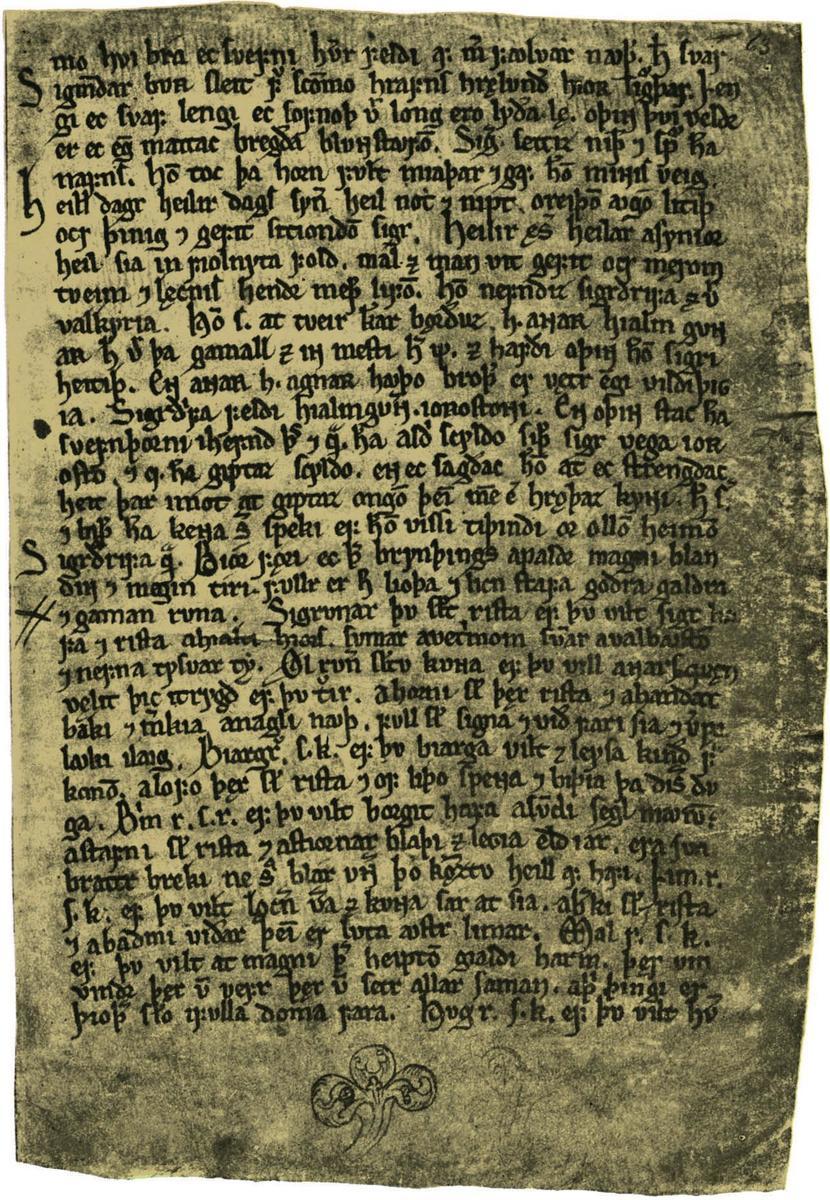 mo hvi bra ec svefni hv̄r feldi af m̄ favlvar navþ. h̄ svar
Sigmdar bvʀ sleit fͥ scōmo hrafns hrælvnd hior sigvþar. Len
gi ec svaf lengi ec sofnoþ v̄ long ero lyða lę. oþin þvi veldr
er ec eḡ mattac bregða blvnstavfō. Sig settiz niþ ⁊ spͬ ha
nafns. hō toc þa horn fvlt miaþar ⁊ gaf hō minnis veig.
Heill dagr heilir dags syn̄ heil nott ⁊ nipt. oreiþō avgō litiþ
ocr þinig ⁊ gefit sitiondō sigr. Heilir ęs̄ heilar asynior
heil sia in fiolnyta fold. mal ⁊ manvit gefit ocr mærom
tveim ⁊ lęcnis hendr meþ lifō. hō nefndiz sigrdrifa ⁊ v̄
valkyria. Hō s. at tveir k̄ar borðuz. h. aɴar hialm gvɴ
aʀ h̄ v̄ þa gamall ⁊ in mesti h̄ m̄. ⁊ hafdi oþin hō sigri
heitiþ. En aɴaʀ h. agnaʀ havþo broþ er vætr engi vildi þig
ia. Sigrdrifa feldi hialmgvɴ. iorostoɴi. En oþin stac ha
svefnþorni ihefnd þͤss ⁊ q̄. ha aldri scyldo siþ sigr vega ior
osto. ⁊ q. ha giptaz scyldo. en ec sagdac hō at ec strengdac
heit þar imot at giptaz ongō þei m̄e ē hręþaz kyɴi. h̄ s.
⁊ biþͬ ha keɴa s̄ speki ef hō vissi tiþindi or ollō heimō
Sigrdrifa q̄. Biór fori ec þͬ brynþings apaldr magni blan
din ⁊ megin tiri. fullr er h̄ lioþa ⁊ licn stafa godra galdra
⁊ gaman rvna. Sigrvnar þv sl̄t rista ef þv vilt sigr ha
fa ⁊ rista ahialti hiors. svmar avettrimom svmar avalbavstō
⁊ nefna tysvar ty. Ol rvn̄ sl̄tv kvɴa ef þv vill aɴars qvęn
velit þic itrygd ef þv trir. ahorni sl̄ þer rista ⁊ ahandar
baki ⁊ m̄kia anagli navþ. fvll sl̄ signa ⁊ við fari sia ⁊ v̄pa
lavki ilavg. Biargr. s.k. ef þv biarga vilt ⁊ leysa kind fͣ
konō. alofo þęr sl̄ rista ⁊ of liþo speɴa ⁊ biþia þa disir dv
ga. Bͥm r. s.r. ef þv vilt borgit hafa asvndi segl marō.
astafni sl̄ rista ⁊ astiornar blaþi ⁊ legia eld iár. era sva
brattr breki ne s̄ blar vɴ̄ þo kōztv heill af hafi. Lim.r.
s.k. ef þv vilt lęcn̄ v̄a ⁊ kvɴa sar at sia. aberki sl̄ rista
⁊ abadmi viðar þeī er lvta avstr limar. Mal r. s.k.
ef þv vilt at magni þͬ heiptō gialdi harm. þęr vm
vindr þęr v̄ vefr þęr v̄ setr allar saman. aþͥ þingi er
þioþͬ sl̄o ifvlla doma fara. Hvg r. s.k. ef þv vilt hv̄